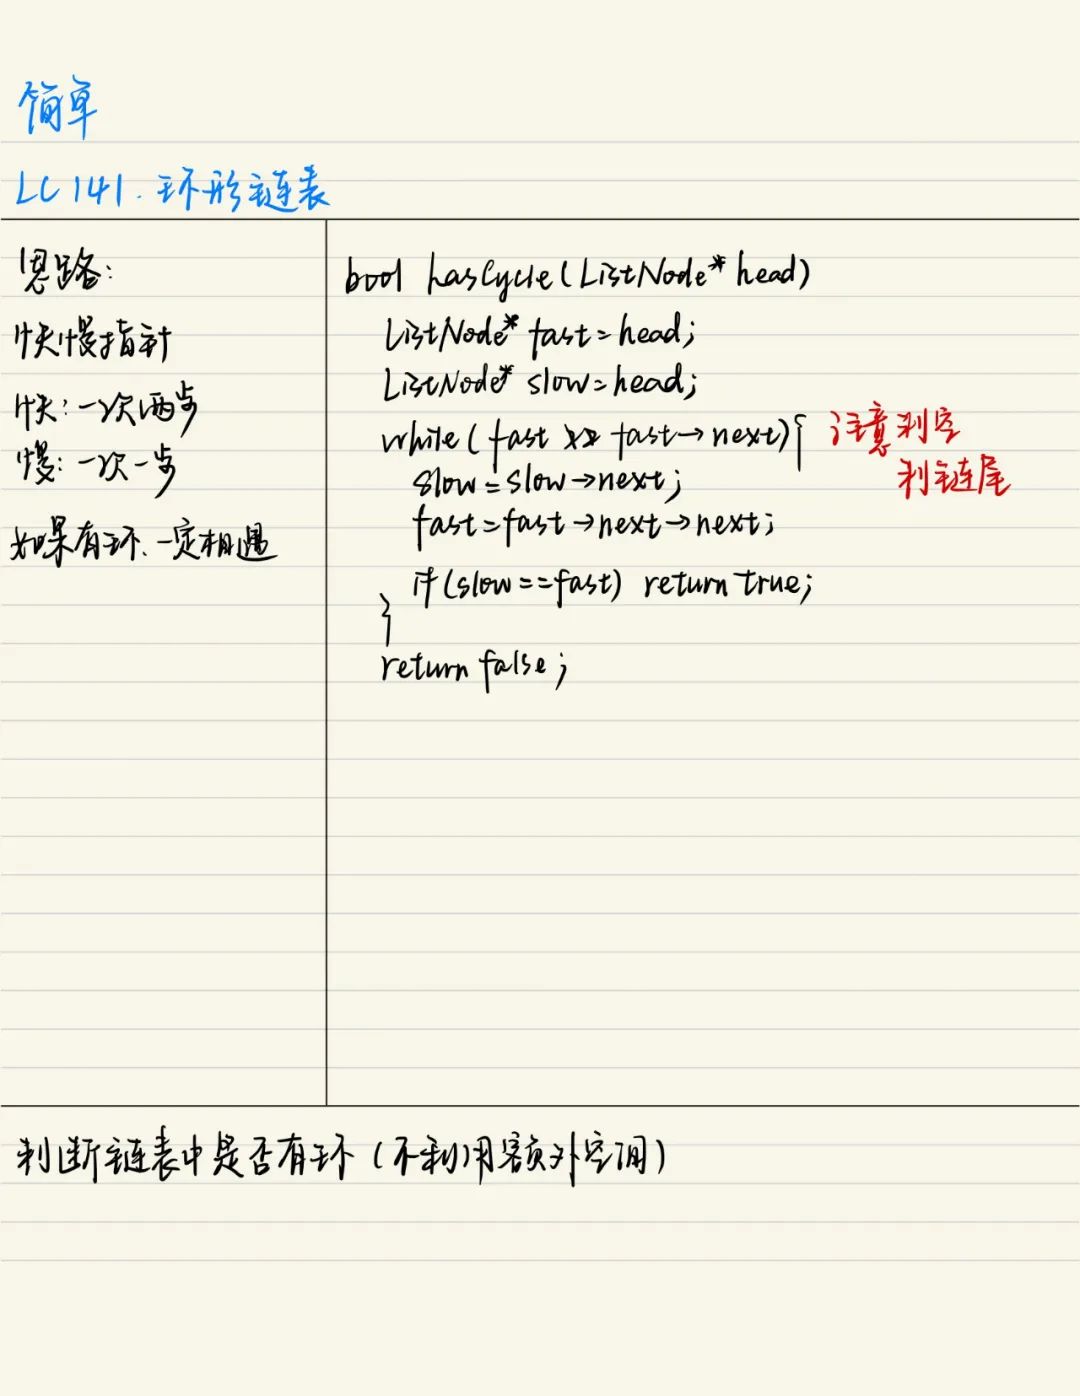 简单
LC 141. 环形链表
思路:
快慢指针
快: 一次两步
慢: 一次一步
如果有环、一定相遇
bool hasCycle(ListNode* head)
ListNode* fast=head;
ListNode* slow=head;
while(fast && fast→next){ 注意判空
判链尾
slow=slow→next;
fast=fast→next→next;
if(slow==fast) return true;
}
return false;
判断链表中是否有环(不利用额外空间)